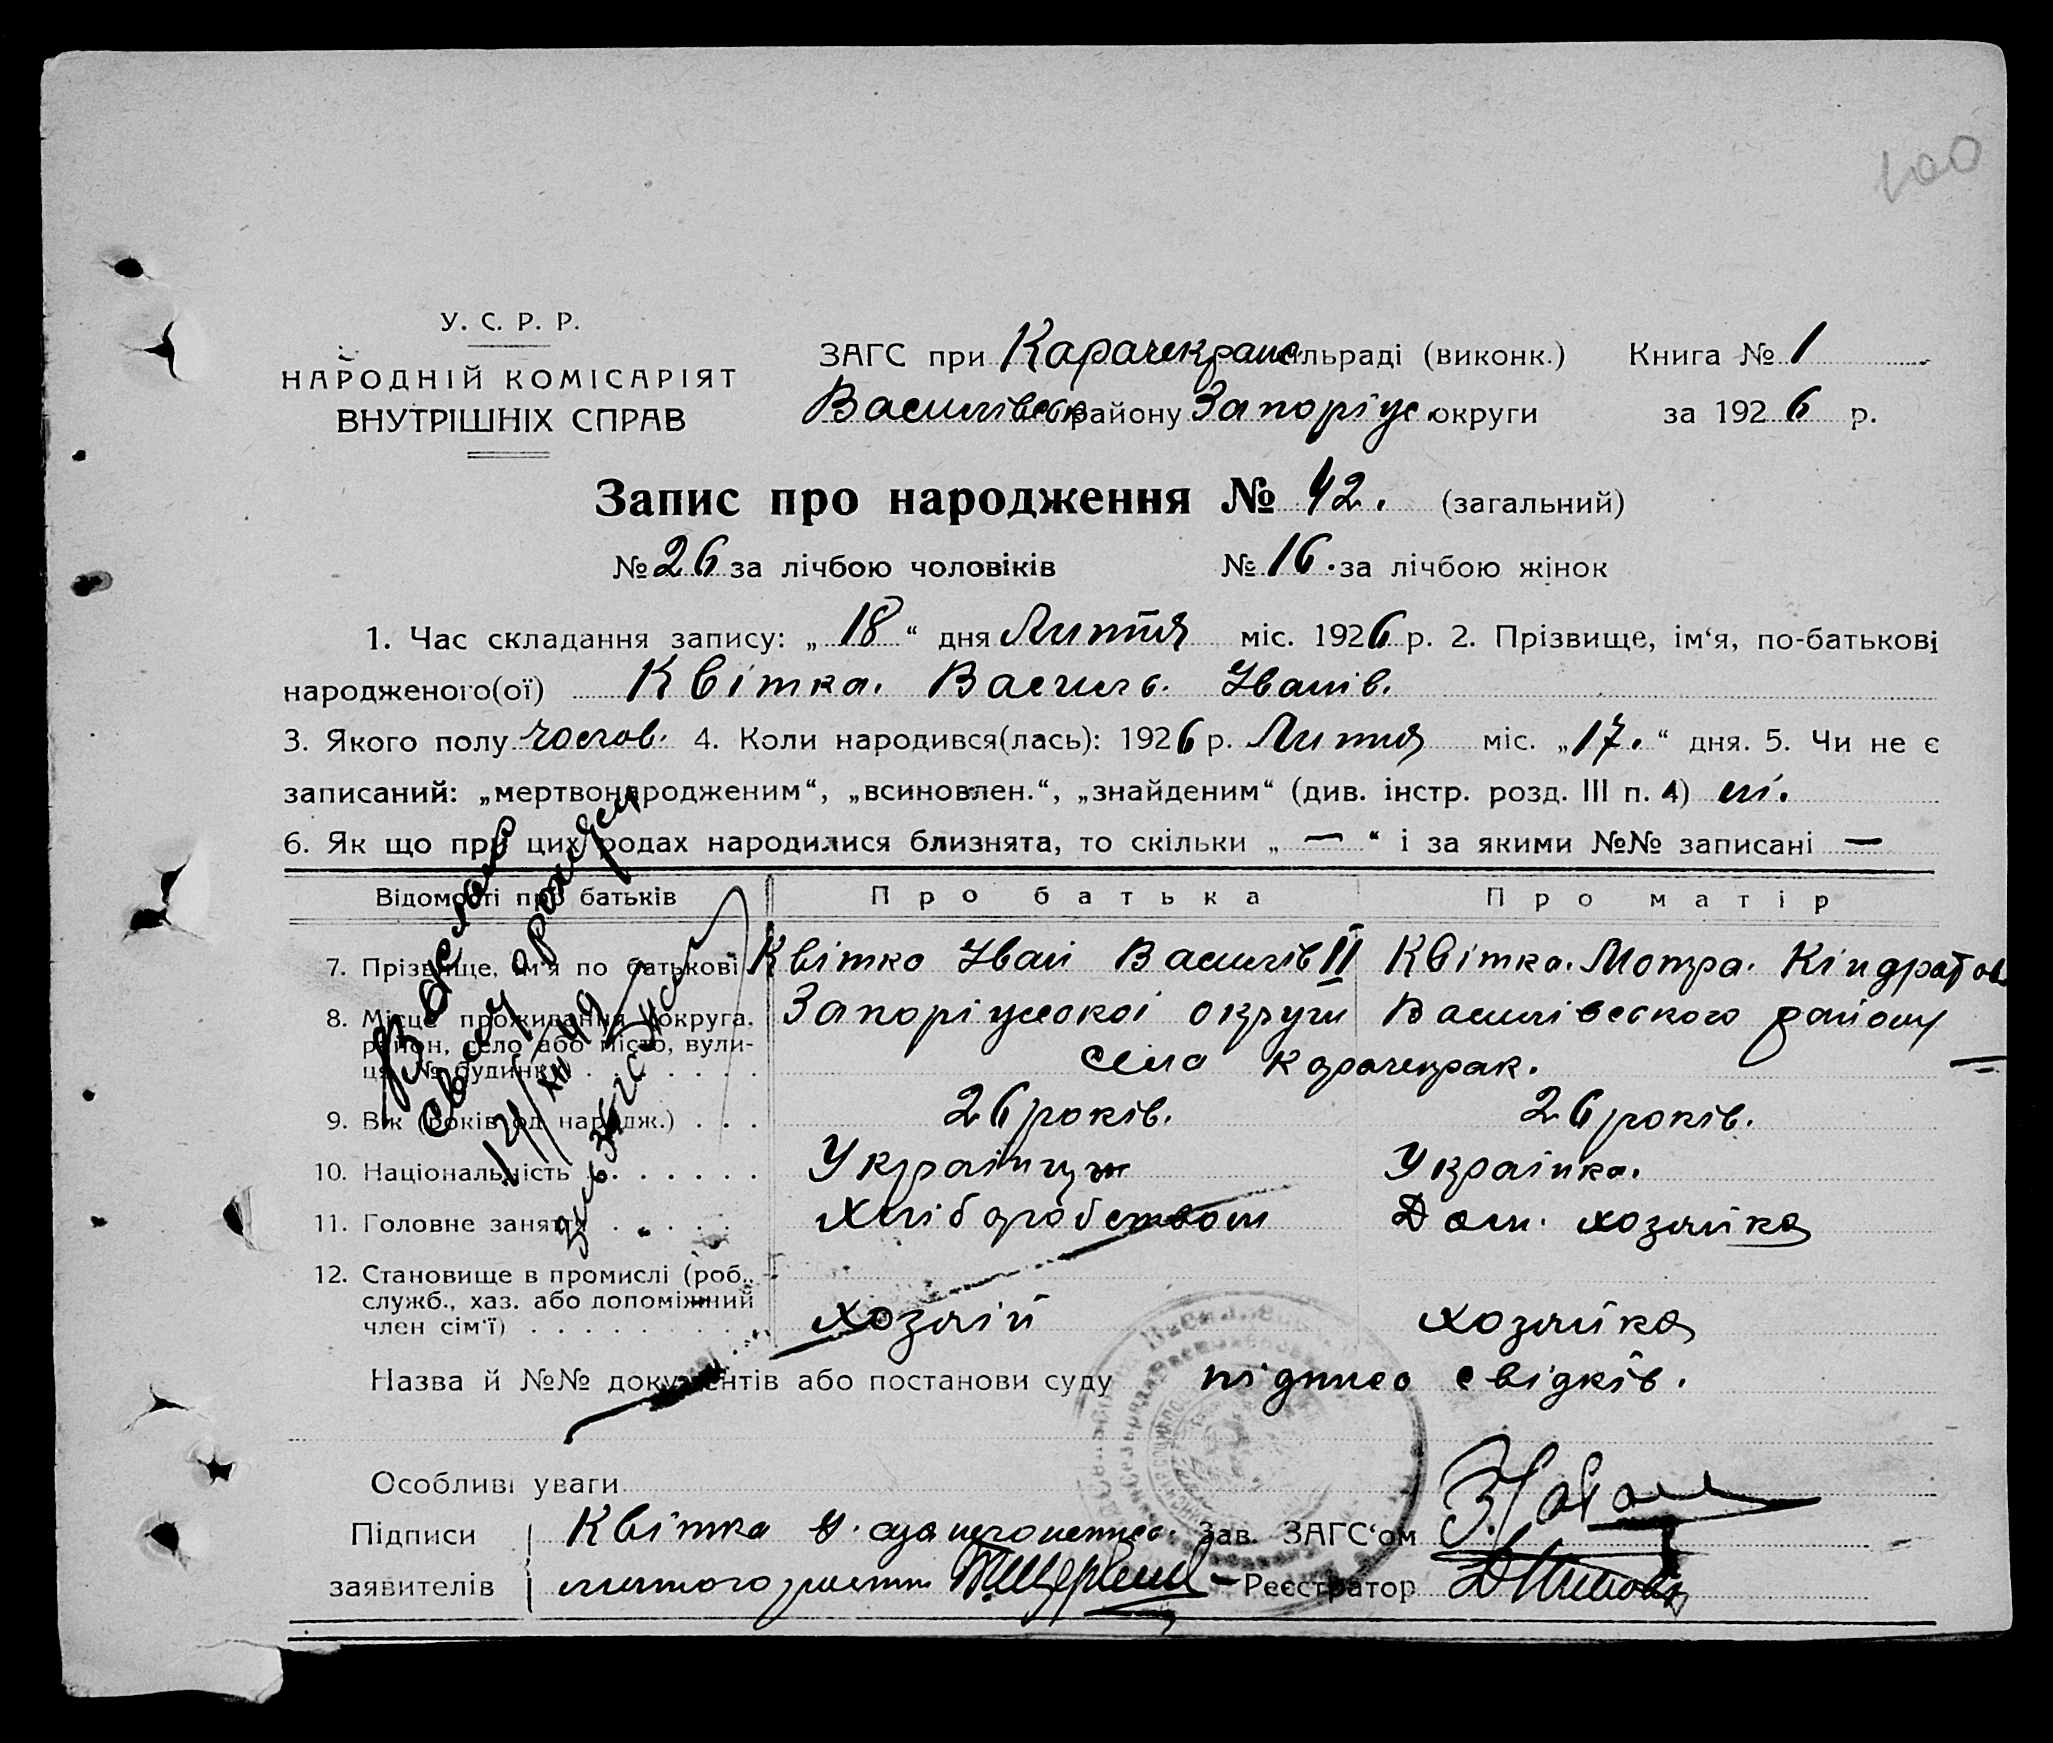 100
У. С. Р. Р.
НАРОДНІЙ КОМІСАРІЯТ
ВНУТРІШНІХ СПРАВ
ЗАГС при Карачекран сільраді (виконк.) Книга № 1
Василівськ району Запоріж. округи за 1926 р.
Запис про народження № 42. (загальний)
№ 26 за лічбою чоловіків № 16. за лічбою жінок
1. Час складання запису: „ 18 “ дня Лютня міс. 1926 р. 2. Прізвище, ім‘я, по-батькові
народженого(ої) Квітка. Василь. Іванів.
3. Якого полу чолов. 4. Коли народився(лась): 1926 р. Лютня міс. „ 17. “ дня. 5. Чи не є
записаний: „мертвонародженим“, „всиновлен.“, „знайденим“ (див. інстр. розд. III п. 4) ні.
6. Як що при цих родах народилися близнята, то скільки „ — “ і за якими №№ записані —
Відомості про батьків Про батька Про матір
7. Прізвище, ім‘я по батькові Квітко Іван Василів II Квітка. Мотра. Кіндратов
8. Місце проживання (округа, Запоріжської округи Василівського району
район, село або місто, вули-
ця, № будинку) . . . . . . села Карачекрак.
9. Вік (років од народж.) . . . 26 років. 26 років.
10. Національність . . . . . . Українцы Українка.
11. Головне заняття . . . . . Хліборобством Дом. хозяйка
12. Становище в промислі (роб.,
служб., хаз. або допоміжний
член сім‘ї) . . . . . . . . хозяїн хозяйка
Выдано
свид о рожден
12/XII 49
Назва й №№ документів або постанови суду підписо свідків.
Особливі уваги
Підписи Квітка Зав. ЗАГС‘ом
заявителів Реєстратор